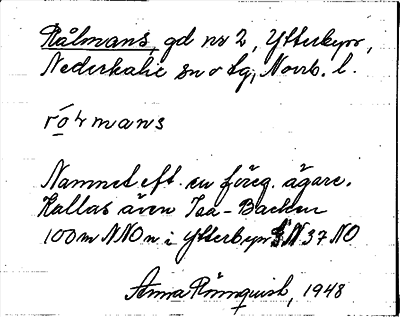 Rålmans, gd nr 2, Ytterbyn,
Nederkalix sn o tg, Norrb. l.
Namnet eft. en föreg. ägare.
Kallas även Isa-Backen
100 m NNO n. i Ytterbyn N 37 NO
Anna Rönnquist, 1948